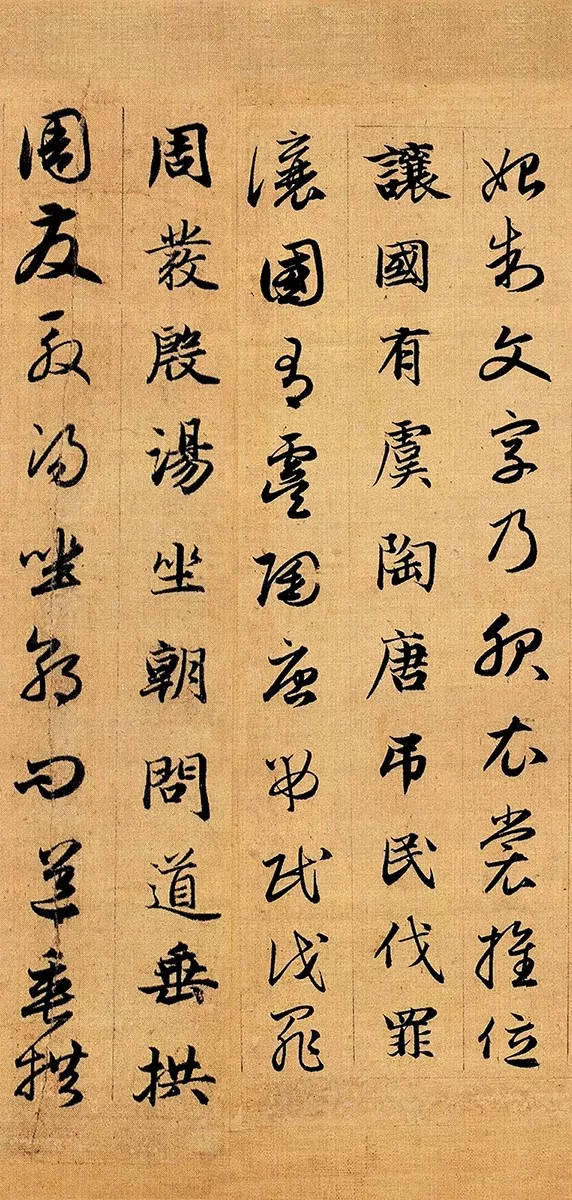 始制文字乃服衣裳推位
讓國有虞陶唐弔民伐罪
讓國有虞陶唐弔民伐罪
周發殷湯坐朝問道垂拱
周發殷湯坐朝問道垂拱